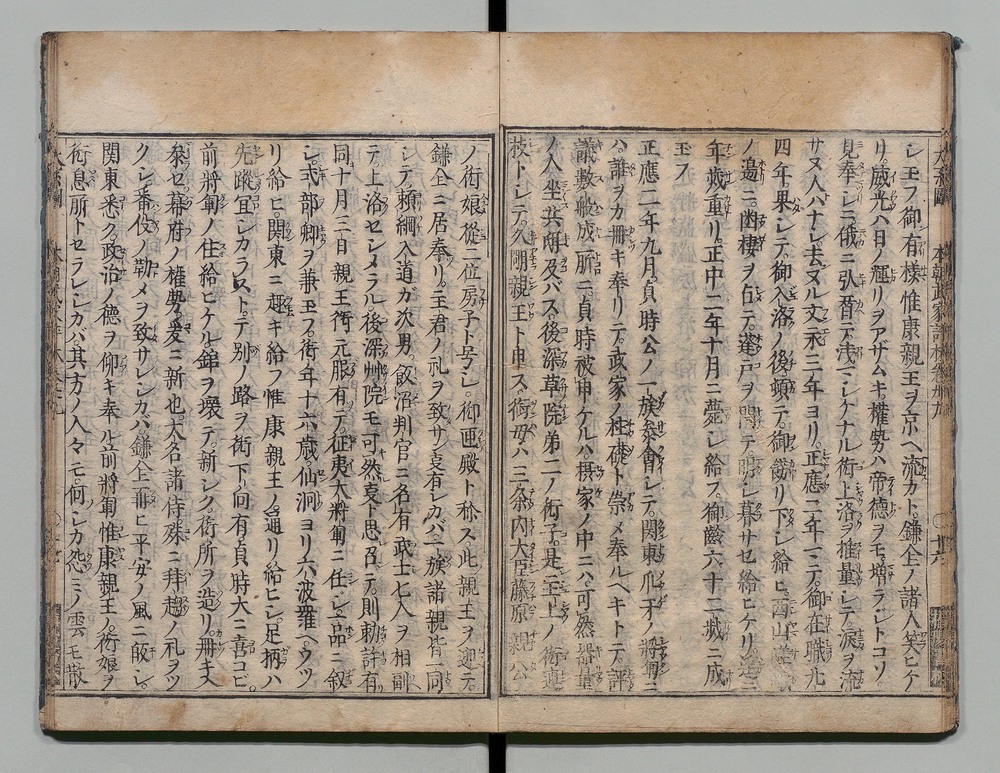 シ玉フ御有樣惟康親王ヲ京ヘ流カト鎌倉ノ諸人笑ヒケ
リ威光ハ日ノ輝リヲアザムキ權勢ハ帝德ヲモ増ラジトコソ
見奉シニ俄ニ引替テ浅マシケナル御上洛ヲ推量シテ涙ヲ流
サヌ人ハナシ去ヌル文永三年ヨリ正應二年マテ御在職九
四年果シテ御入洛ノ後頓テ御餝リ下シ給ヒ西山
ノ邊ニ幽棲ヲ占テ蓬戸ヲ閇テ明シ暮サセ給ヒケリ
年歳重リ正中二年十月ニ薨シ給フ御齡六十二歳ニ成
玉フ
正應二年九月貞時公ノ一族參會シテ関東爪牙ノ將軍ニ
ハ誰ヲカ冊キ奉リテ政家ノ柱礎ト崇メ奉ルヘキトテ評
議敷般成所ニ貞時被申ケルハ摂家ノ中ニハ可然器量
ノ人坐共
及バス後深草院第二ノ御子是ニ主上ノ御連
枝トシテ久明親王ト申ス御母ハ三条内大臣藤原親公
ノ御娘從一位房子ト号シ御匣殿ト称ス此親王ヲ迎テ
鎌倉ニ居奉リ主君ノ礼ヲ致サ
有シカバ一族諸親皆一同
シテ頼綱入道ガ次男飯沼判官ニ名有武士七人ヲ相副
テ上洛セシメラル後深艸院モ可然哀ト思召テ則勅許有
同十月三日親王御元服有テ征夷大將軍ニ任シ一品ニ叙
シ式部卿ヲ兼玉フ御年十六歳仙洞ヨリ六波羅ヘウツ
リ給ヒ関東ニ趣キ給フ惟康親王ノ通リ給ヒシ足柄ハ
先蹤宜シカラストテ別ノ路ヲ御下向有貞時大ニ喜コビ
前將軍ノ住給ヒケル舘ヲ壊テ新シク御所ヲ造リ冊キ入
參セ幕府ノ權勢爰ニ新也大名諸侍殊ニ拜趨ノ礼ヲツ
クシ番役ノ勤メヲ致サレシカハ鎌倉
ヒ平安ノ風ニ皈シ
関東悉ク政治ノ德ヲ仰キ奉ル前將軍惟康親王ノ御娘ヲ
御息所トセラレシカバ其方ノ人々モ何シカ怨ミノ雲モ散